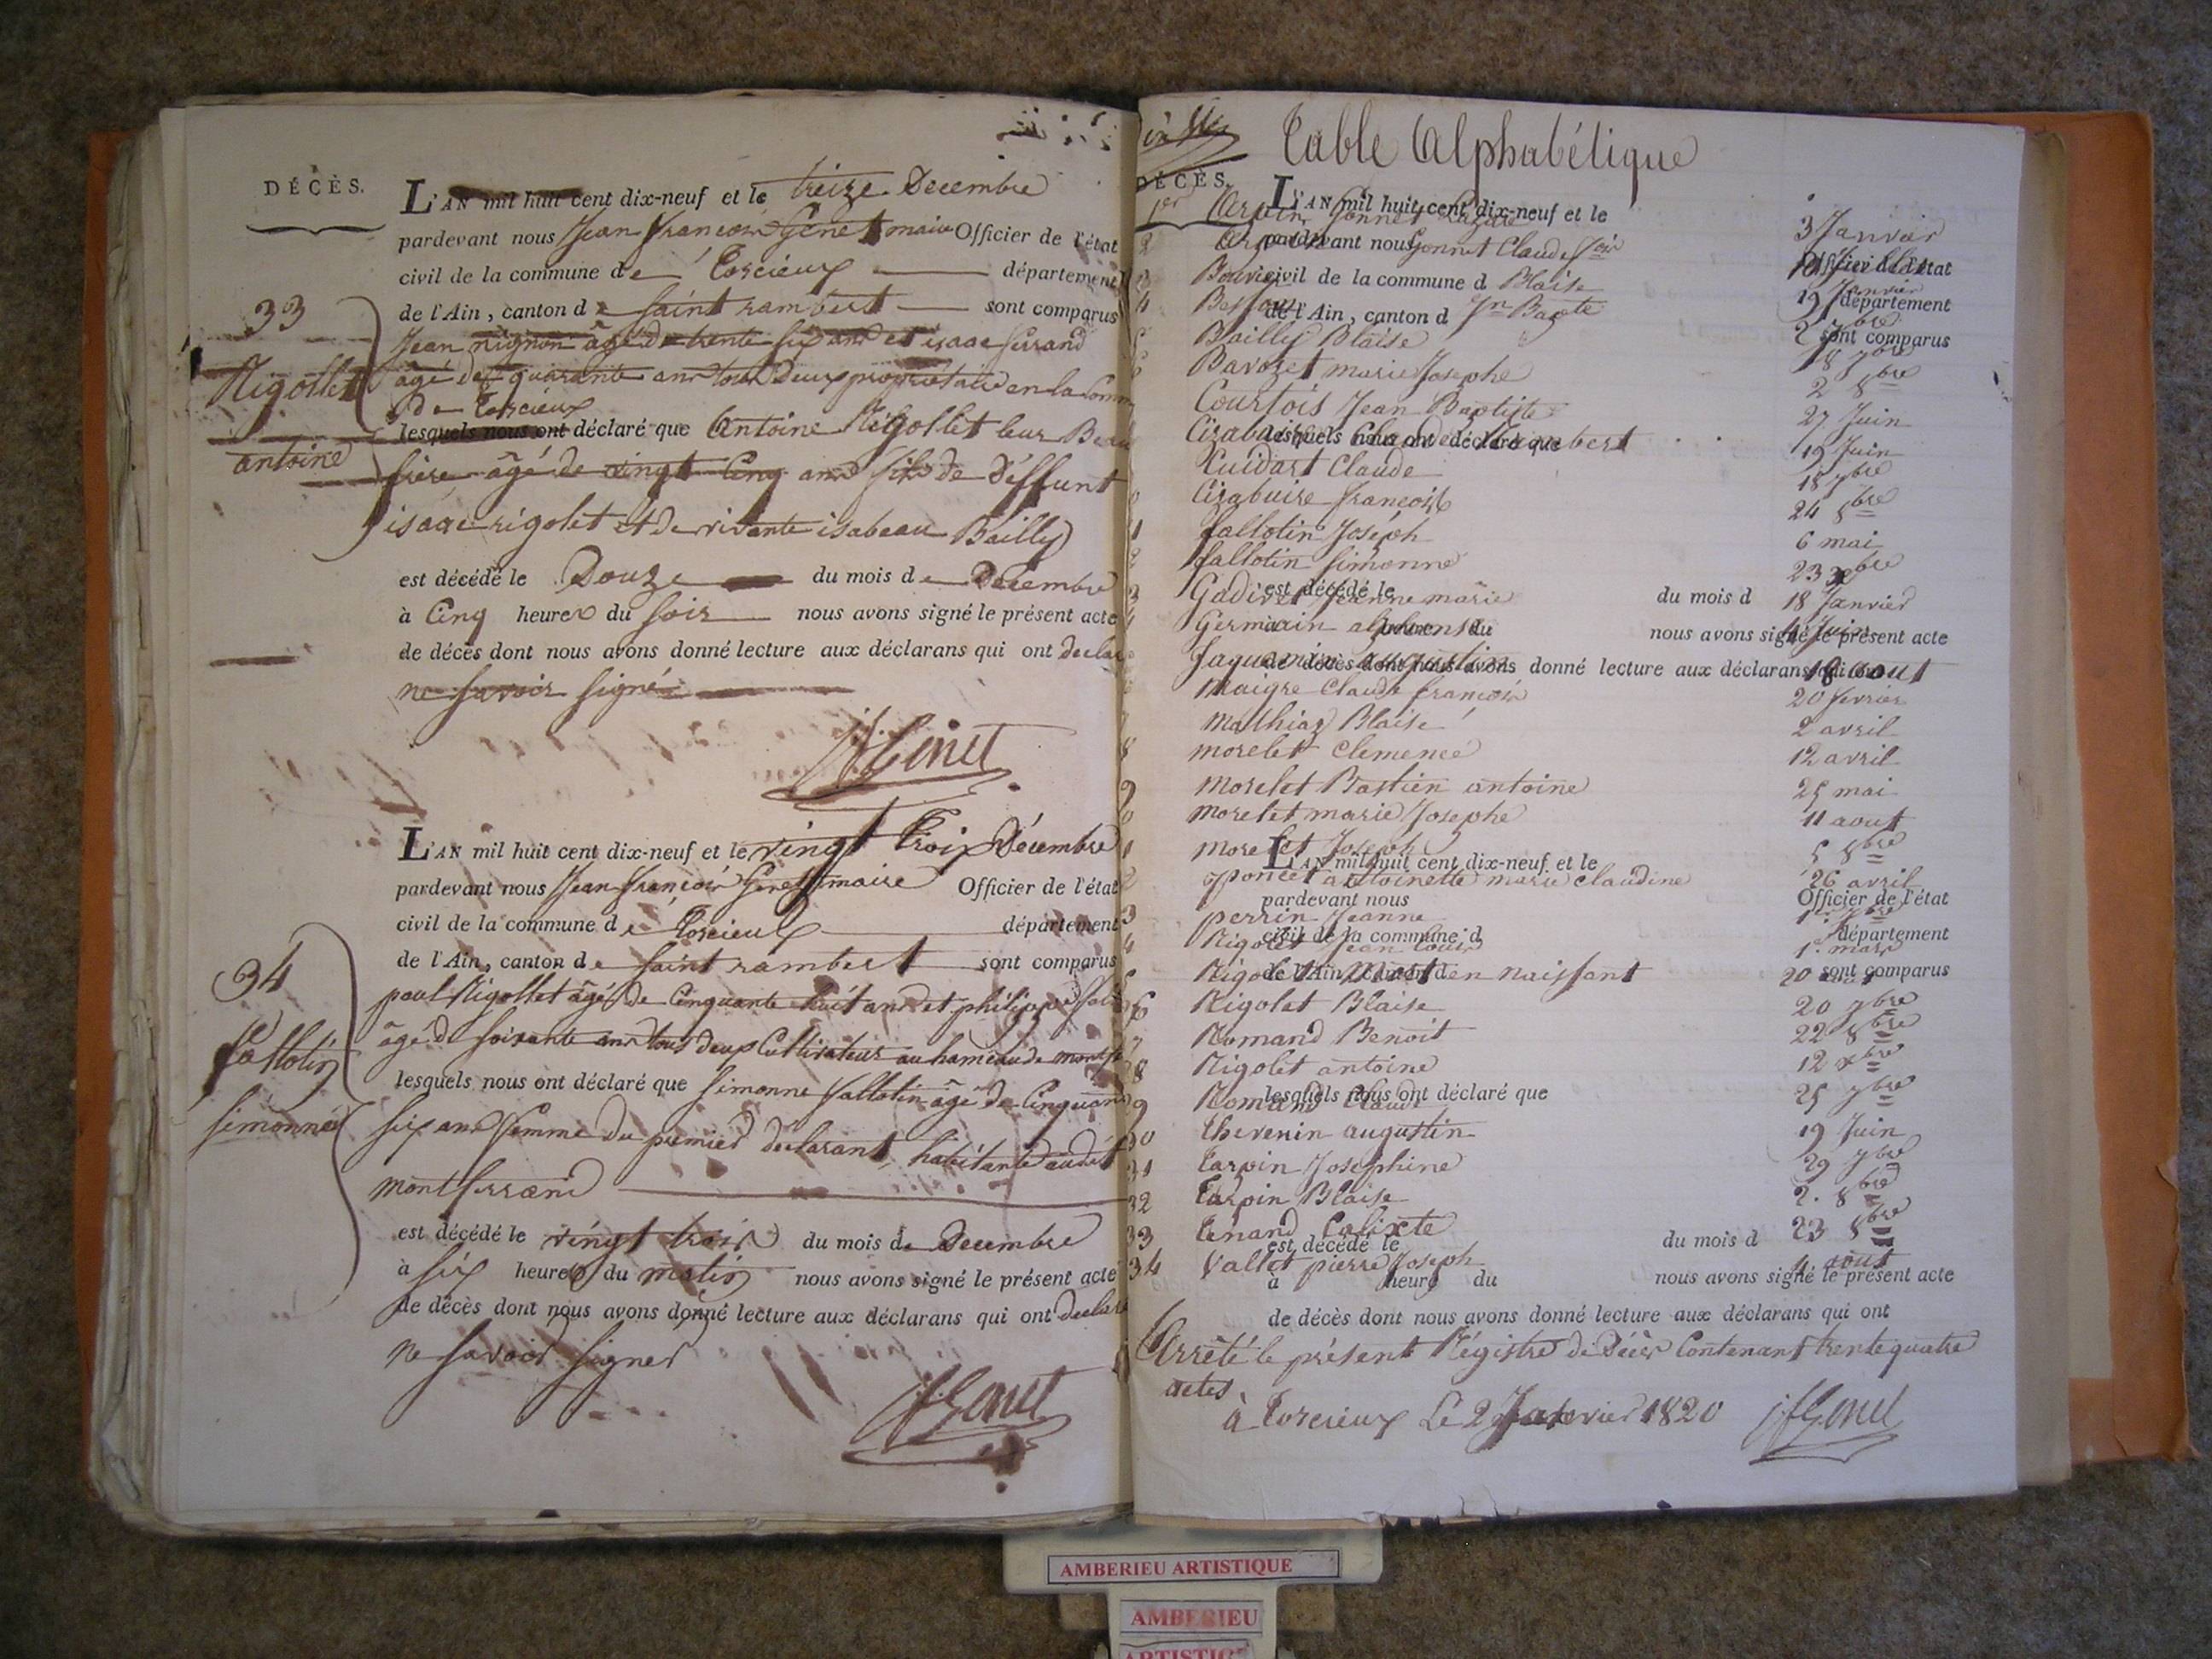 DÉCÈS.
L'AN mil huit cent dix-neuf et le treize Decembre
pardevant nous Jean françois Genet maire Officier de l'état
civil de la commune de Torcieux département
de l'Ain, canton de Saint rambert sont comparus
33
Jean nignon âgé de trente six ans et isaac ferrand
Rigollet
âgé de quarante ans tous deux proprietaire en la Comm
de Torcieux
antoine
lesquels nous ont déclaré que Antoine Rigollet leur Beau
frère âgé de vingt Cinq ans fils de deffunt
isaac rigolet et de vivante isabeau Bailly
est décédé le Douze du mois de Decembre
à Cinq heures du soir nous avons signé le présent acte
de décès dont nous avons donné lecture aux déclarans qui ont declar
ne savoir signé
jfGenet
L'AN mil huit cent dix-neuf et le vingt trois Décembre
pardevant nous Jean françois Genet maire Officier de l'état
civil de la commune de Torcieux département
de l'Ain, canton de saint rambert sont comparus
34
paul Rigollet âgé de Cinquante huit ans et philippe
fallotin
âgé de soixante ans tous deux Cultivateurs au hameau de montfe
lesquels nous ont déclaré que Simonne fallotin âgé de Cinquante
simonne
six ans femme du premier declarant, habitante audit
montferrand
est décédé le vingt trois du mois de Decembre
à six heures du matin nous avons signé le présent acte
de décès dont nous avons donné lecture aux déclarans qui ont declare
ne savoir signer
jfGenet
Table Alphabétique
DÉCÈS.
L'AN mil huit cent dix-neuf et le
1er Carpin Sonnet 3 Janvier
pardevant nous Officier de l'état
2 Gonnet Claude
civil de la commune d département
3 Bouvier Blaise 19 Janvier
de l'Ain, canton d sont comparus
4 Jn Bapte 2 7bre
5 Bailly Blaise 18 7bre
6 Bavozet marie Josephe 2 8bre
Courtois Jean Baptiste 27 Juin
lesquels nous ont déclaré que
Cizabuire 19 Juin
Cuidart Claude 18 7bre
0 Cizabuire françois 24 8bre
1 fallotin Joseph 6 mai
2 fallotin Simonne 23 xbre
est décédé le du mois d
3 Gadivet Jeanne marie 18 Janvier
à heure du nous avons signé le présent acte
4 Germain alphonse Juin
de décès dont nous avons donné lecture aux déclarans qui ont
Jaquemin augustin 18 aout
Maigre Claude françois 20 fevrier
7 Mathiaz Blaise 2 avril
8 morelet clemence 12 avril
9 Morelet Bastien antoine 25 mai
0 morelet marie Josephe 11 aout
1 Morelet Joseph 5 8bre
L'AN mil huit cent dix-neuf et le
2 poncet antoinette marie claudine 26 avril
pardevant nous Officier de l'état
3 perrin Jeanne 1er 7bre
civil de la commune d département
4 Rigolet Jean Louis 1er mars
de l'Ain, canton d sont comparus
5 Rigolet mort en naissant 20
26 Rigolet Blaise 20 7bre
27 Romand Benoit 22 8bre
28 Rigolet antoine 12 xbre
lesquels nous ont déclaré que
29 Romand Claude 25 7bre
30 thevenin augustin 19 Juin
31 Tarpin Josephine 29 7bre
32 Tarpin Blaise 2 8bre
33 Tenand Calixte 23 8bre
est décédé le du mois d
34 Vallet pierre Joseph 4 aout
à heure du nous avons signé le présent acte
de décès dont nous avons donné lecture aux déclarans qui ont
Arrêté le présent Régistre de Décès Contenant trente quatre
actes
à Torcieux Le 2 Janvier 1820 jfGenet
AMBERIEU ARTISTIQUE
AMBERIEU
ARTISTIQ